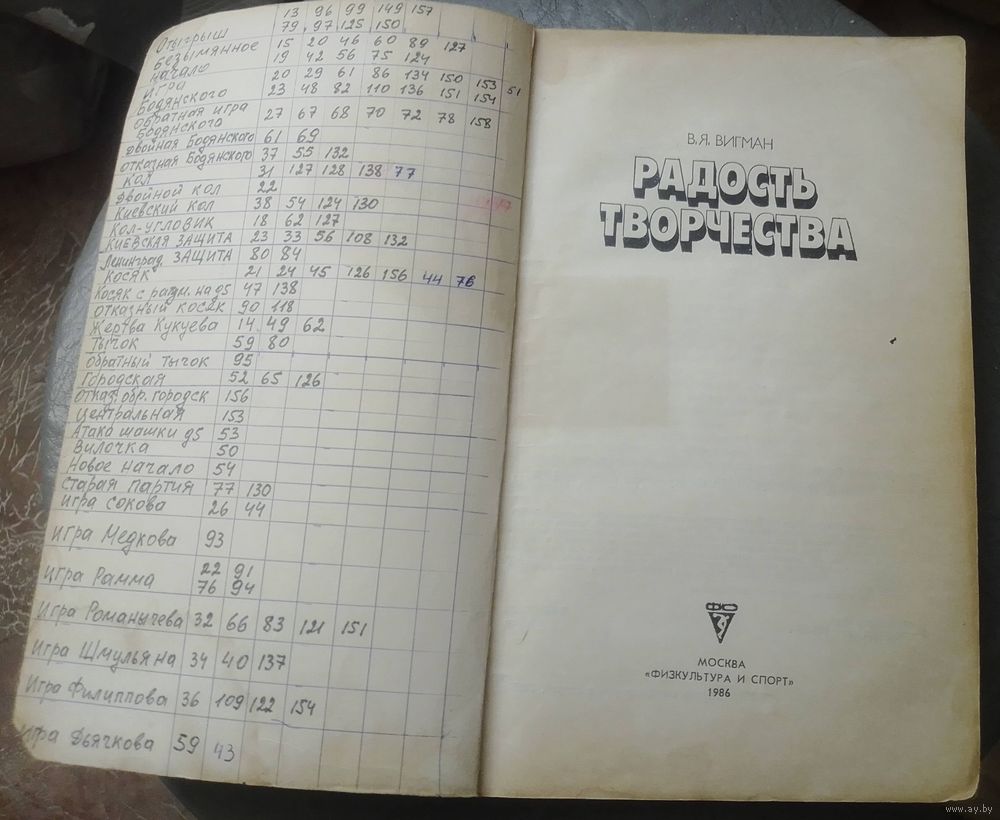 13 96 99 149 157
Отыгрыш 79 97 125 150
Безымянное 15 20 46 60 89 127
начало 19 42 56 75 124
Игра 20 29 61 86 134 150 153 51
Бодянского 23 48 82 110 136 151 154
обратная игра
Бодянского 27 67 68 70 72 78 158
двойная Бодянского 61 69
отказная Бодянского 37 55 132
Кол 31 127 128 138 77
двойной кол 22
Киевский кол 38 54 124 130
Кол-угловик 18 62 127
Киевская защита 23 33 56 108 132
Ленинград. защита 80 84
Косяк 21 24 45 126 156 44 76
Косяк с разм. на d5 47 138
отказный косяк 90 118
Жертва Кукуева 14 49 62
Тычок 59 80
обратный тычок 95
Городская 52 65 126
отказ. обр. городск 156
центральная 153
Атака шашки g5 53
Вилочка 50
Новое начало 54
старая партия 77 130
игра сокова 26 44
игра Медкова 93
игра Рамма 22 91
76 94
Игра Романычева 32 66 83 121 151
Игра Шмульяна 34 40 137
Игра Филиппова 36 109 122 154
Игра Дьячкова 59 43
В.Я. ВИГМАН
РАДОСТЬ
ТВОРЧЕСТВА
ФиС
МОСКВА
«ФИЗКУЛЬТУРА И СПОРТ»
1986
www.ay.by